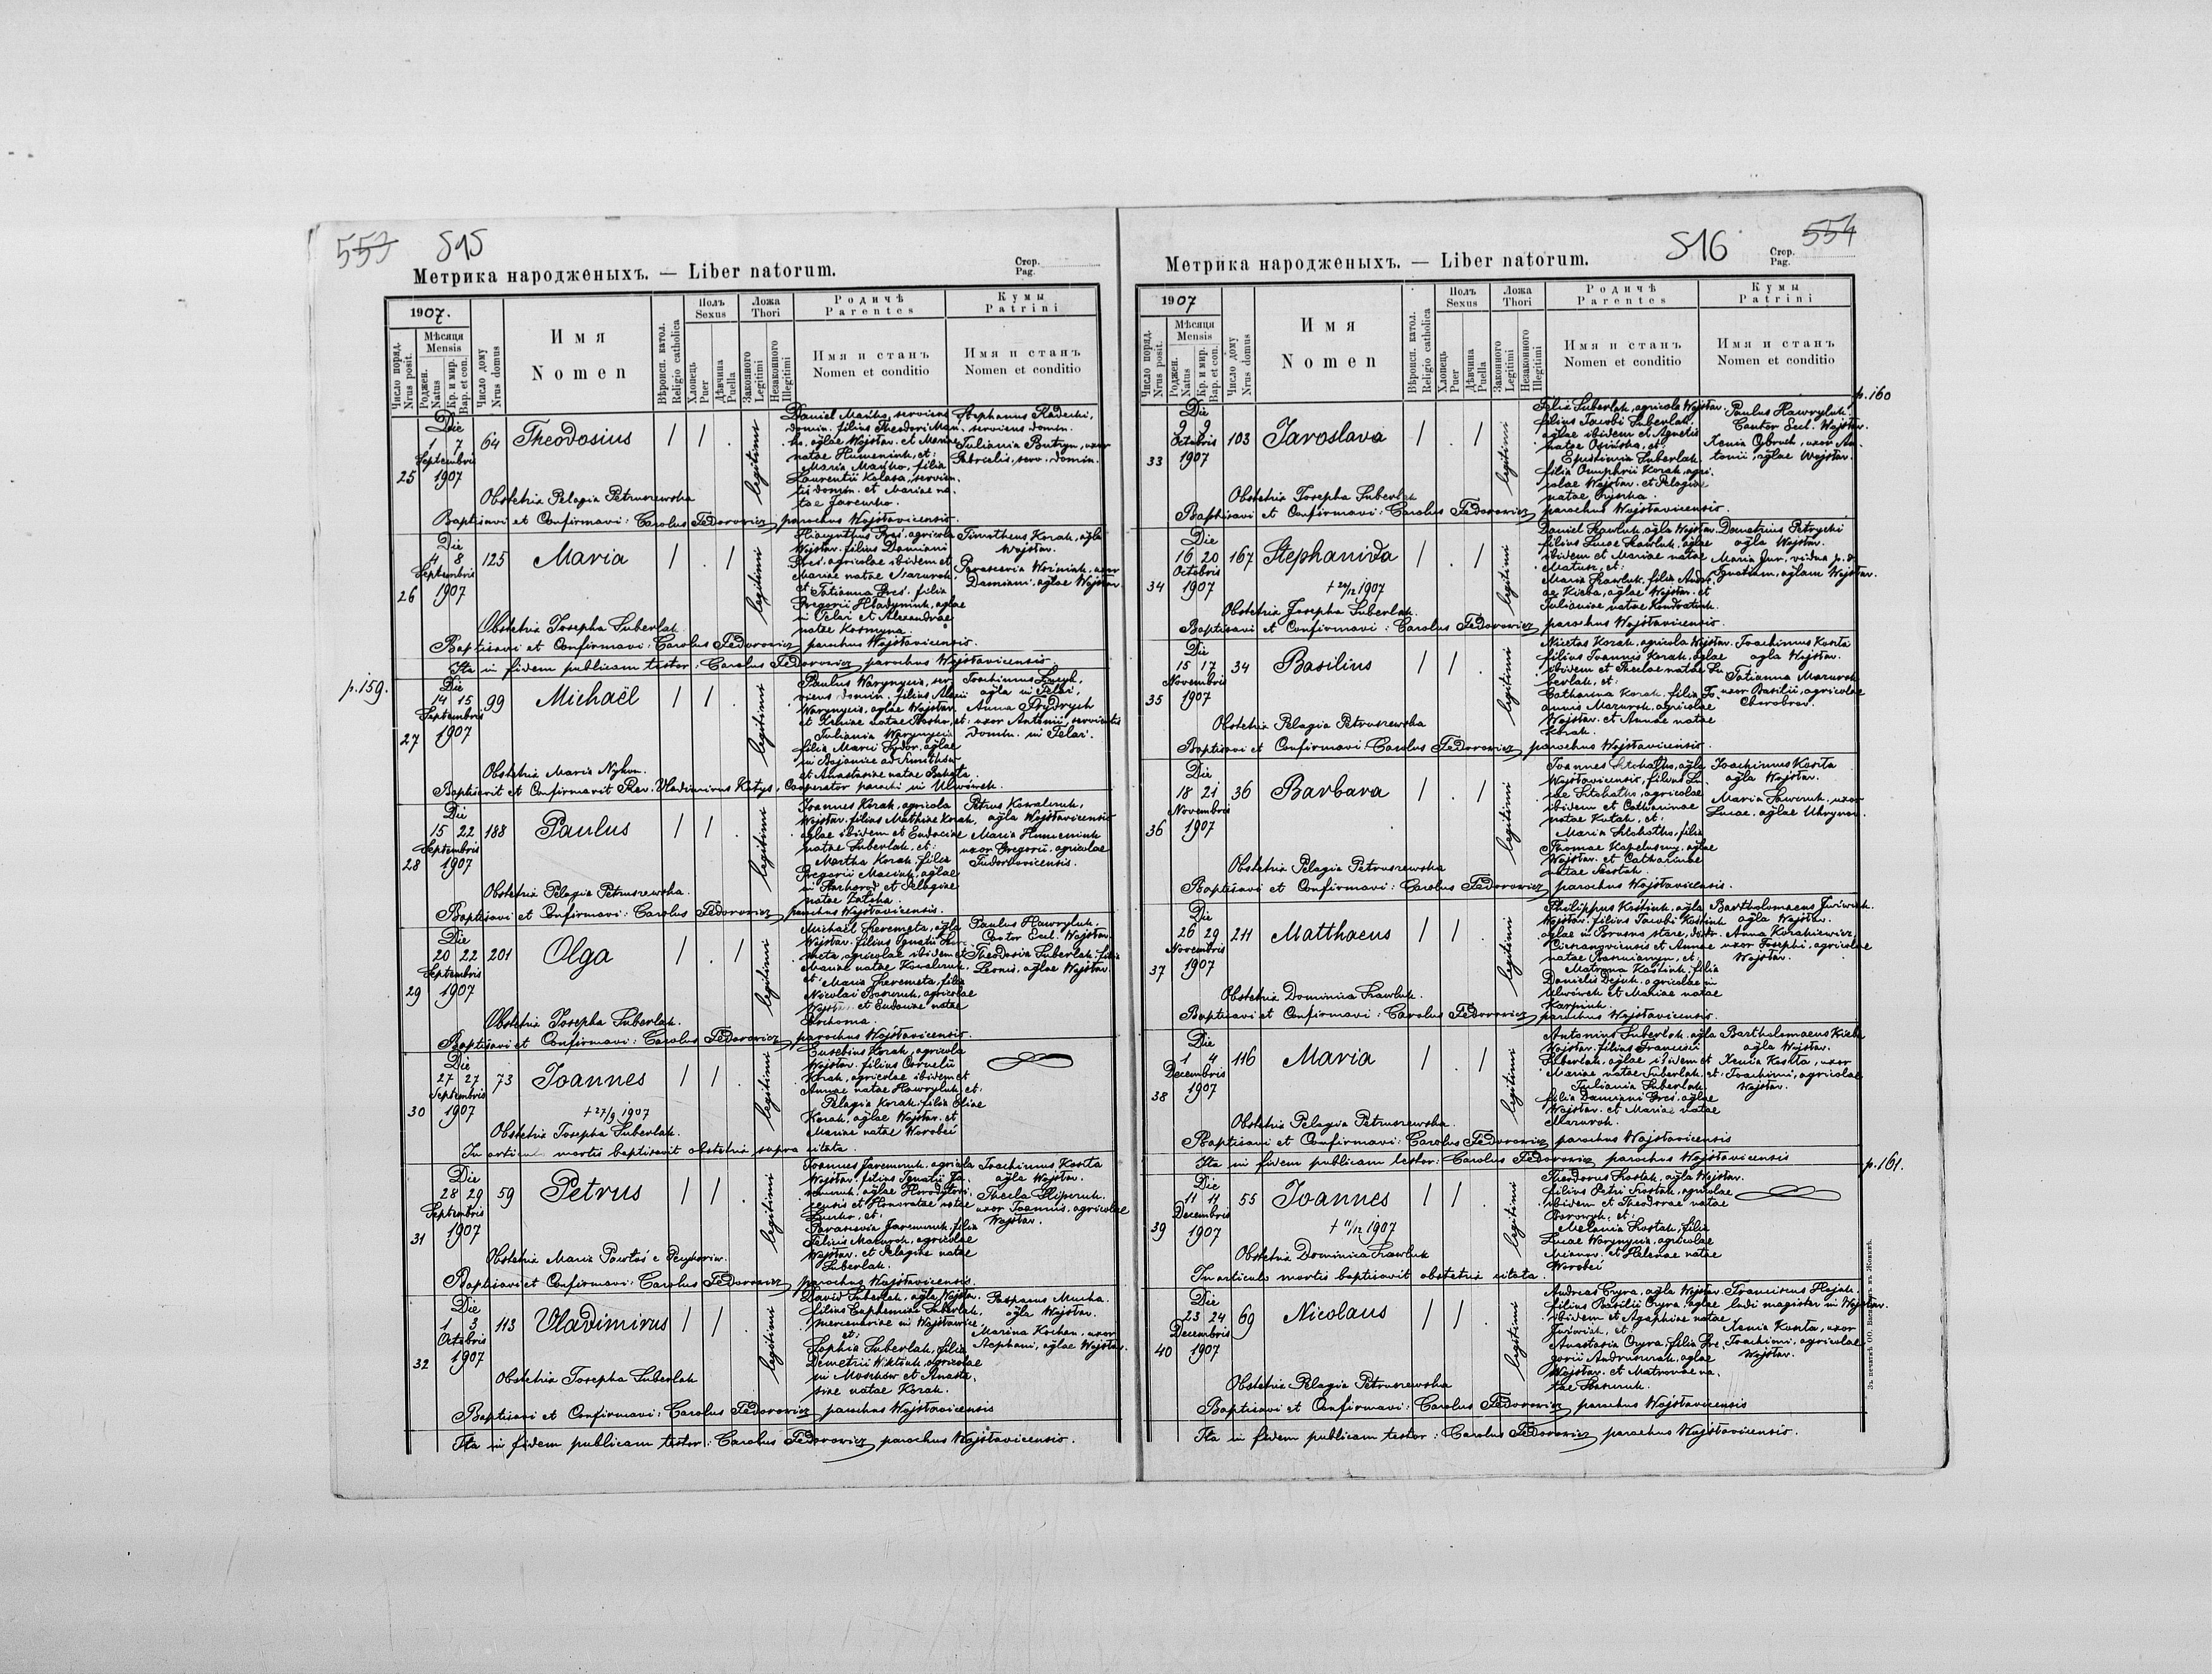 553 515
Метрика народженыхъ. — Liber natorum.
Стор.
Pag.
1907.
Число поряд.
Nrus posit.
Мѣсяця
Mensis
Роджен.
Natus
Кр. и мир.
Bap. et con.
Число дому
Nrus domus
Имя
Nomen
Вѣроисп. катол.
Religio catholica
Полъ
Sexus
Хлопець
Puer
Дѣвчина
Puella
Ложа
Thori
Законного
Legitimi
Незаконного
Illegitimi
Родичѣ
Parentes
Имя и станъ
Nomen et conditio
Кумы
Patrini
Имя и станъ
Nomen et conditio
Die
1 7
Septembris
25 1907
64 Theodosius
legitimi
Daniel Mańko, serviens
domin. filius Theodori Mań
ko, agłae Wojsław. et Mariae
natae Humeniuk, et:
Maria Mańko, filia
Laurentii Kolasa, servien
tis domin. et Mariae na
tae Jarenko.
Stephanus Radecki,
serviens domin.
Juliania Butryn, uxor
Gabrielis, serv. domin.
Obstetrix Pelagia Petruszewska
Baptisavi et Confirmavi: Carolus Fedorowicz parochus Wojsławicensis.
Die
4 8
Septembris
26 1907
125 Maria
legitimi
Hiacynthus Greś, agricola
Wojsław. filius Damiani
Greś, agricolae ibidem et
Mariae natae Mazurok,
et Tatianna Greś, filia
Gregorii Hładyniuk, agłae
in Telaż et Alexandrae
natae Kosmyna.
Timotheus Korak, agła
Wojsław.
Parascevia Woźniak, uxor
Damiani, agłae Wojsław.
Obstetrix Josepha Suberlak
Baptisavi et Confirmavi: Carolus Fedorowicz parochus Wojsławicensis.
Ita in fidem publicam testor: Carolus Fedorowicz parochus Wojsławicensis.
p. 159.
Die
14 15
Septembris
27 1907
99 Michaël
legitimi
Paulus Warynycia, ser
viens domin. filius Alexii
Warynycia, agłae Wojsław.
et Xeniae natae et:
Juliania Warynycia
filia Marii Sydor, agłae
in Bojanice ad
et Anastasiae natae
Joachimus
agła in Telaż,
Anna Prydrych
uxor Antonii, servientis
domin. in Telaż.
Obstetrix Maria Nykon.
Baptisavit et Confirmavit Rev. Vladimirus Katys, Cooperator parochi in Uhrinów.
Die
15 22
Septembris
28 1907
188 Paulus
legitimi
Joannes Korak, agricola
Wojsław. filius Mathiae Korak,
agłae ibidem et Eudociae
natae Suberlak, et:
Martha Korak, filia
Gregorii Maciuk, agłae
in et Pelagiae
natae
Petrus Kowalczuk,
agła Wojsławicensis
Maria Humeniuk
uxor Gregorii, agricolae
Tudorkovicensis.
Obstetrix Pelagia Petruszewska.
Baptisavi et Confirmavi: Carolus Fedorowicz parochus Wojsławicensis.
Die
20 22
Septembris
29 1907
201 Olga
legitimi
Michaël Szeremeta, agła
Wojsław. filius Ignatii Sze
remeta, agricolae ibidem et
Mariae natae Kowalczuk,
et Maria Szeremeta, filia
Nicolai Baszczuk, agricolae
Wojsł. et Eudociae natae
Paulus Hawryluk,
Cantor Eccl. Wojsław.
Theodosia Suberlak, filia
Leonis, agłae Wojsław.
Obstetrix Josepha Suberlak.
Baptisavi et Confirmavi: Carolus Fedorowicz parochus Wojsławicensis.
Die
27 27
Septembris
30 1907
73 Joannes
+ 27/9 1907
legitimi
Eusebius Korak, agricola
Wojsław. filius Cornelii
Korak, agricolae ibidem et
Annae natae Hawryluk, et:
Pelagia Korak, filia Eliae
Korak, agłae Wojsław. et
Mariae natae Worobeć
Obstetrix Josepha Suberlak.
In articulo mortis baptisavit obstetrix supra citata.
Die
28 29
Septembris
31 1907
59 Petrus
legitimi
Joannes Jaremczuk, agricola
Wojsław. filius Ignatii Ja
remczuk, agłae
et Honoratae natae
et:
Parascevia Jaremczuk, filia
Felicis Mazurok, agricolae
Wojsław. et Pelagiae natae
Suberlak.
Joachimus Kosita
agła Wojsław.
Thecla
uxor Joannis, agricolae
Wojsław.
Obstetrix Maria
Baptisavi et Confirmavi: Carolus Fedorowicz parochus Wojsławicensis.
Die
1 3
Octobris
32 1907
113 Vladimirus
legitimi
David Suberlak, agła Wojsław.
filius Euphemiae Suberlak,
mercenariae in Wojsławice,
et:
Sophia Suberlak, filia
Demetrii Wiktiuk, agricolae
in Moszków et Anasta
siae natae Korak.
Gasparus Mucha,
agła Wojsław.
Marina Kochan, uxor
Stephani, agłae Wojsław.
Obstetrix Josepha Suberlak
Baptisavi et Confirmavi: Carolus Fedorowicz parochus Wojsławicensis
Ita in fidem publicam testor: Carolus Fedorowicz parochus Wojsławicensis.
516 554
Метрика народженыхъ. — Liber natorum.
Стор.
Pag.
1907
Число поряд.
Nrus posit.
Мѣсяця
Mensis
Роджен.
Natus
Кр. и мир.
Bap. et con.
Число дому
Nrus domus
Имя
Nomen
Вѣроисп. катол.
Religio catholica
Полъ
Sexus
Хлопець
Puer
Дѣвчина
Puella
Ложа
Thori
Законного
Legitimi
Незаконного
Illegitimi
Родичѣ
Parentes
Имя и станъ
Nomen et conditio
Кумы
Patrini
Имя и станъ
Nomen et conditio
p. 160
Die
9 9
Octobris
33 1907
103 Jaroslava
legitimi
Felix Suberlak, agricola Wojsław.
filius Jacobi Suberlak,
agłae ibidem et Agnetis
natae Osińska, et:
Epistimia Suberlak
filia Onuphrii Korak, agri
colae Wojsław. et Pelagiae
natae
Paulus Hawryluk
Cantor Eccl. Wojsław.
Xenia uxor An
tonii, agłae Wojsław.
Obstetrix Josepha Suberlak
Baptisavi et Confirmavi: Carolus Fedorowicz parochus Wojsławicensis.
Die
16 20
Octobris
34 1907
167 Stephanida
+ 24/12 1907
legitimi
Daniel Szawluk, agła Wojsław.
filius Lucae Szawluk, agłae
ibidem et Mariae natae
Matusz, et:
Maria Szawluk, filia Andre
ae Kicba, agłae Wojsław. et
Julianiae natae Kondratiuk.
Demetrius Petrycki
agła Wojsław.
Maria Jur, vidua p.
Ignatium, agłam Wojsław.
Obstetrix Josepha Suberlak.
Baptisavi et Confirmavi: Carolus Fedorowicz parochus Wojsławicensis.
Die
15 17
Novembris
35 1907
34 Basilius
legitimi
Nicetas Korak, agricola Wojsław.
filius Joannis Korak, agłae
ibidem et Theclae natae Su
berlak, et:
Catharina Korak, filia Jo
annis Mazurok, agricolae
Wojsław. et Annae natae
Korak.
Joachimus Kosita
agła Wojsław.
Tatianna Mazurok
uxor Basilii, agricolae
Chorobrov.
Obstetrix Pelagia Petruszewska
Baptisavi et Confirmavi: Carolus Fedorowicz parochus Wojsławicensis.
Die
18 21
Novembris
36 1907
36 Barbara
legitimi
Joannes agła
Wojsławicensis, filius Lu
cae agricolae
ibidem et Catharinae
natae Kutak, et:
Maria filia
Thomae agłae
Wojsław. et Catharinae
natae
Joachimus Kosita
agła Wojsław.
Maria uxor
Lucae, agłae Uhrynov.
Obstetrix Pelagia Petruszewska
Baptisavi et Confirmavi: Carolus Fedorowicz parochus Wojsławicensis.
Die
26 29
Novembris
37 1907
211 Matthaeus
legitimi
Philippus Kostiuk, agła
Wojsław. filius Jacobi Kostiuk
agłae in Brusno stare, distr.
Cieszanoviensis et Annae
natae et:
Matrona Kostiuk, filia
Danielis Dejuk, agricolae in
Ulwówek et Mariae natae
Karpiuk.
Bartholomaeus
agła Wojsław.
Anna Korakiewicz
uxor Josephi, agricolae
Wojsław.
Obstetrix Dominica Szawluk.
Baptisavi et Confirmavi: Carolus Fedorowicz parochus Wojsławicensis.
Die
1 4
Decembris
38 1907
116 Maria
legitimi
Antonius Suberlak, agła
Wojsław. filius Francisci
Suberlak, agłae ibidem et
Mariae natae Suberlak, et:
Juliania Suberlak
filia Damiani Greś, agłae
Wojsław. et Mariae natae
Mazurok.
Bartholomaeus Kicba
agła Wojsław.
Xenia Kosita, uxor
Joachimi, agricolae
Wojsław.
Obstetrix Pelagia Petruszewska.
Baptisavi et Confirmavi: Carolus Fedorowicz parochus Wojsławicensis
Ita in fidem publicam testor: Carolus Fedorowicz parochus Wojsławicensis
p. 161.
Die
11 11
Decembris
39 1907
55 Joannes
+ 11/12 1907
legitimi
Theodorus Szostak, agła Wojsław.
filius Petri Szostak, agricolae
ibidem et Theodorae natae
et:
Melania Szostak, filia
Lucae Warynycia, agricolae
et Helenae natae
Worobeć
Obstetrix Dominica Szawluk
In articulo mortis baptisavit obstetrix citata.
Die
23 24
Decembris
40 1907
69 Nicolaus
legitimi
Andreas Cyra, agła Wojsław.
filius Basilii Cyra, agłae
ibidem et Agaphiae natae
et:
Anastasia Cyra, filia Gre
gorii Andruszczak, agłae
Wojsław. et Matronae na
tae
Franciscus Hojak
ludi magister in Wojsław.
Xenia Kosita, uxor
Joachimi, agricolae
Wojsław.
Obstetrix Pelagia Petruszewska
Baptisavi et Confirmavi: Carolus Fedorowicz parochus Wojsławicensis
Ita in fidem publicam testor: Carolus Fedorowicz parochus Wojsławicensis.
Зъ печатнѣ ОО. Василіянъ въ Жовквѣ.